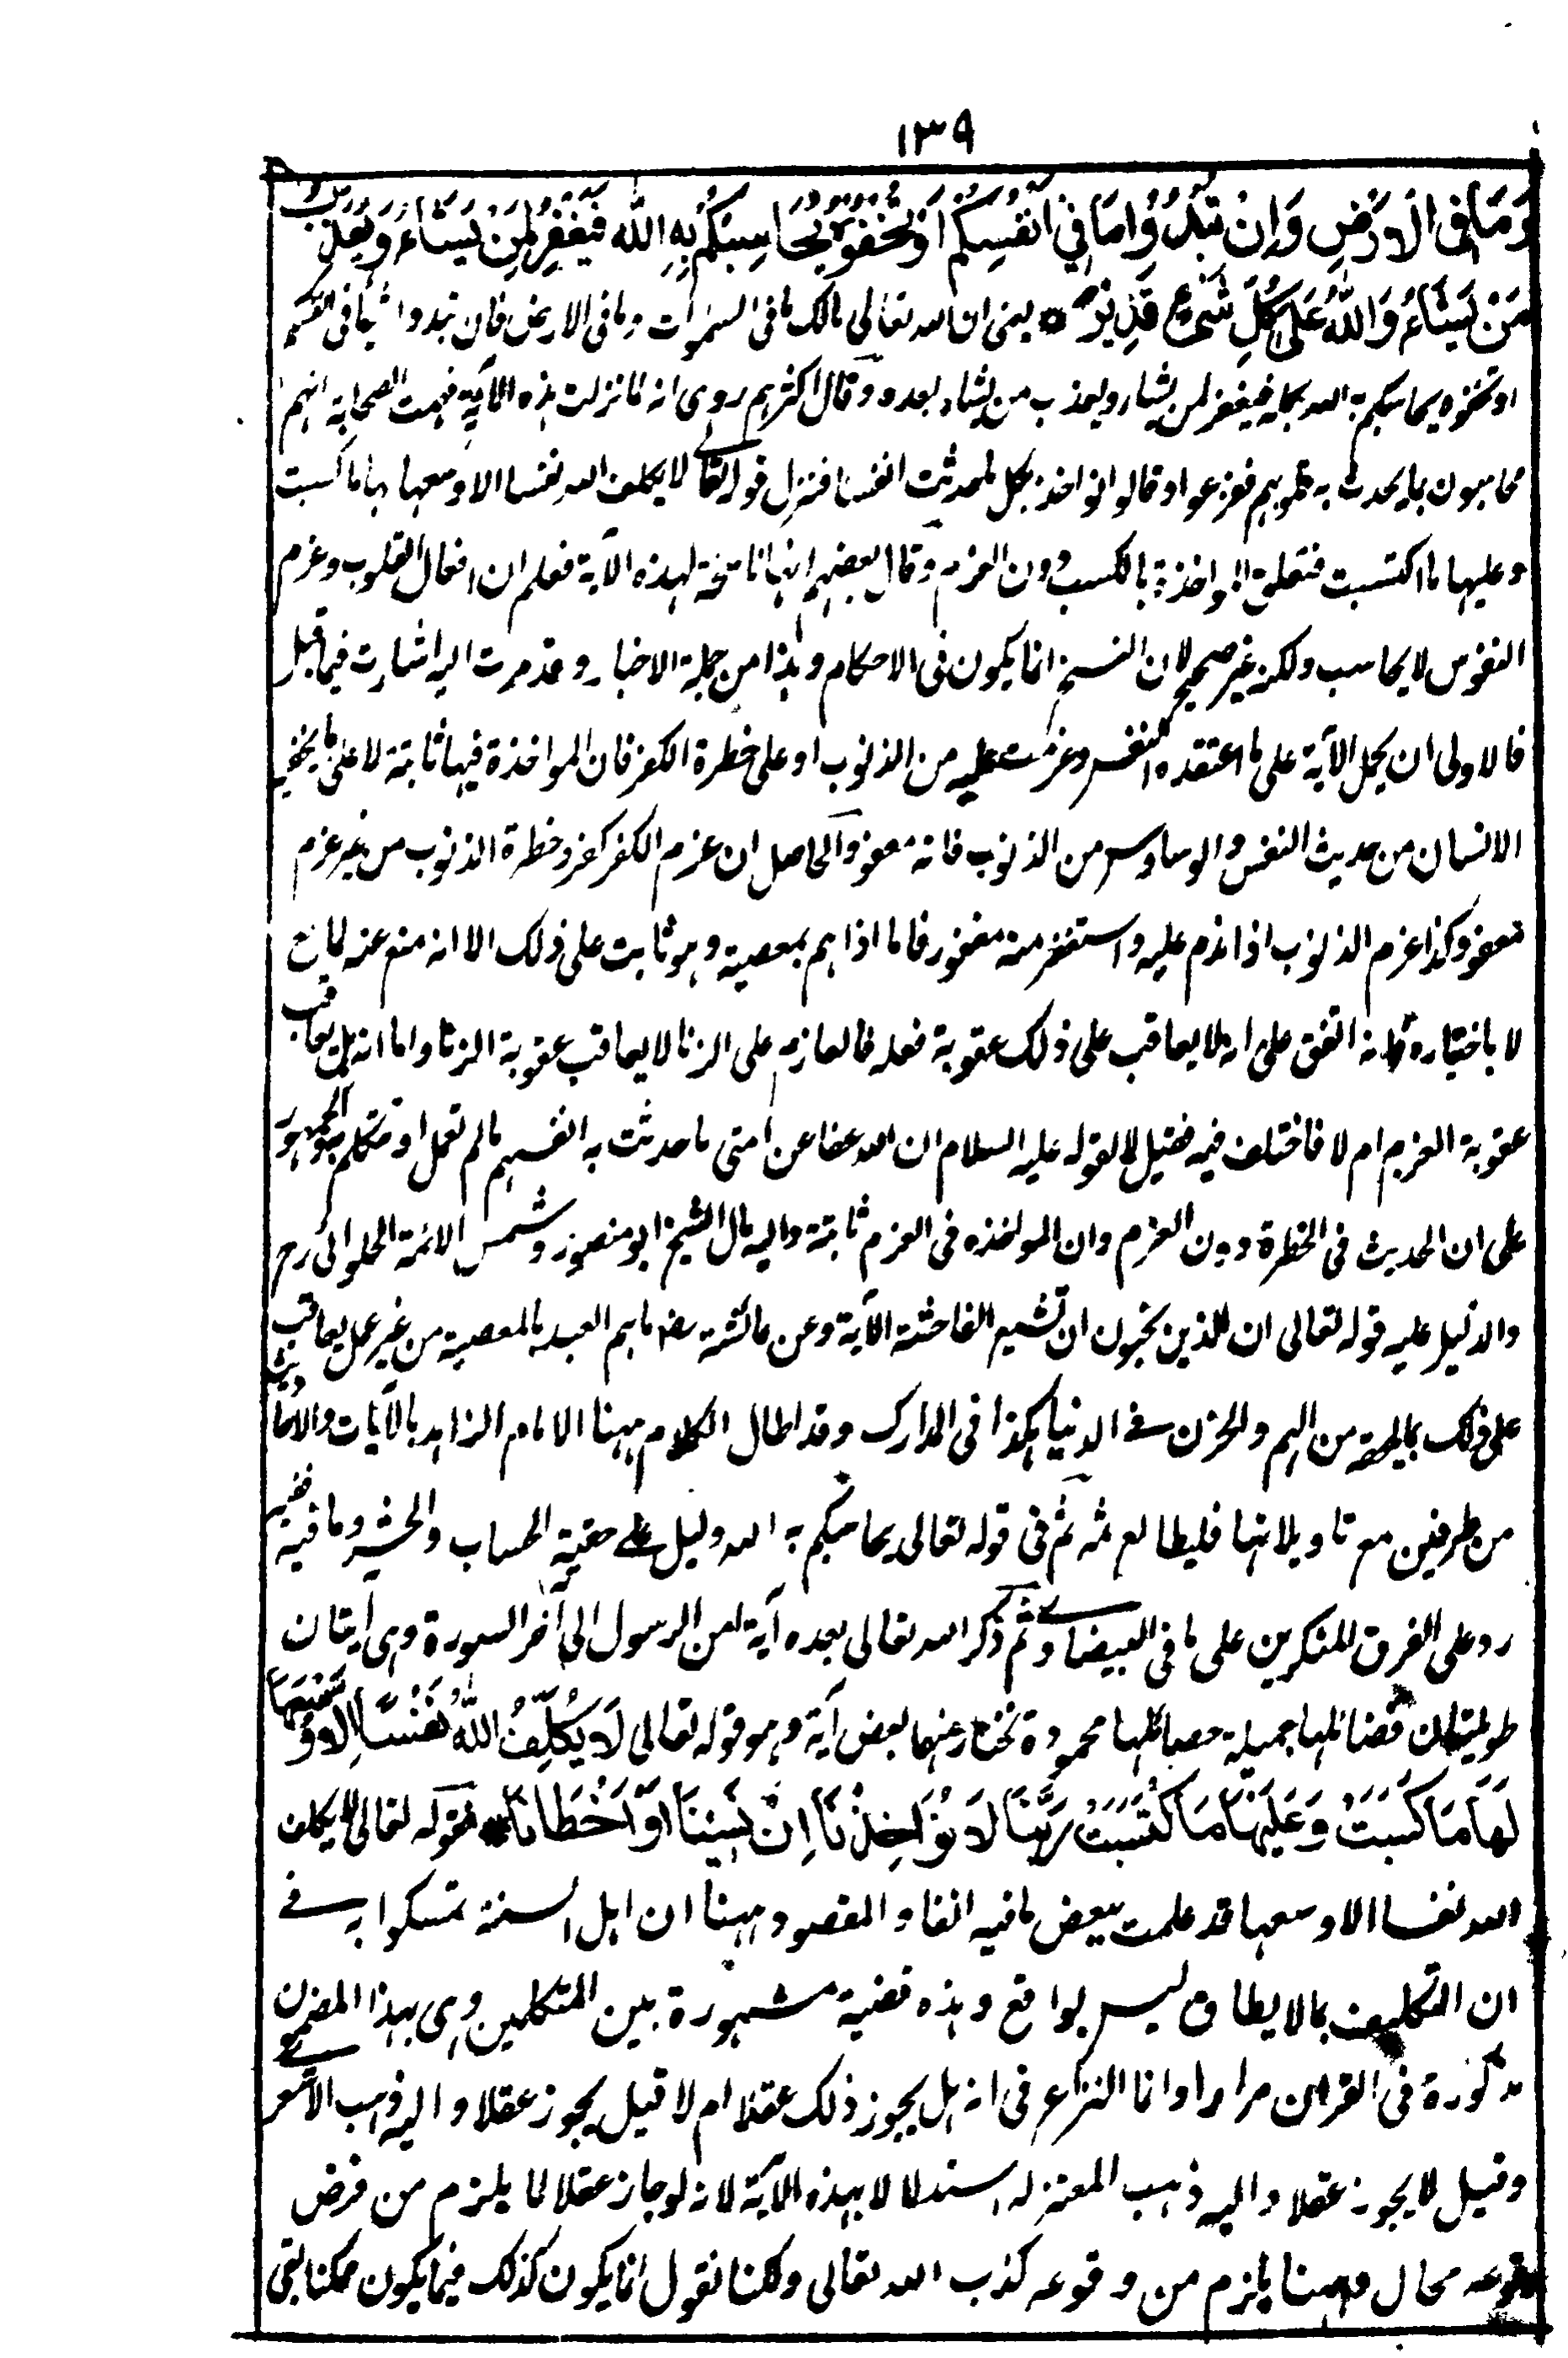 ١٣٩
وَمَا فِى الْاَرْضِ وَاِنْ تُبْدُوْا مَا فِىْ اَنْفُسِكُمْ اَوْ تُخْفُوْهُ يُحَاسِبْكُمْ بِهِ اللّٰهُ فَيَغْفِرُ لِمَنْ يَشَاءُ وَيُعَذِّبُ
مَنْ يَشَاءُ وَاللّٰهُ عَلٰى كُلِّ شَىْءٍ قَدِيْرٌ يعنى ان الله تعالى مالك ما فى السموات وما فى الارض فان تبدوا شيئا فى انفسكم
او تخفوه يحاسبكم به الله بحاله فيغفر لمن يشاء ويعذب من يشاء بعده وقال اكثرهم روى انه لما نزلت هذه الآية فهمت الصحابة انهم
محاسبون بما يحدث به قلوبهم ففزعوا وقالوا انواخذ بكل ما حدثت انفسنا فنزل قوله تعالى لا يكلف الله نفسا الا وسعها لها ما كسبت
وعليها ما اكتسبت فتعلق المواخذة بالكسب دون العزم وقال بعضهم انها ناسخة لهذه الآية فعلم ان افعال القلوب وعزم
النفوس لا يحاسب ولكنه غير صحيح لان النسخ انما يكون فى الاحكام وهذا من جملة الاخبار وقد مرت اليه اشارت فيما قبل
فالاولى ان يحمل الآية على ما اعتقده النفس وعزمت عليه من الذنوب او على خطرة الكفر فان المواخذة فيها ثابتة لا على ما يخفيه
الانسان من حديث النفس والوساوس من الذنوب فانه معفو والحاصل ان عزم الكفر كفر وخطرة الذنوب من غير عزم
معفو وكذا عزم الذنوب اذا ندم عليه واستغفر منه مغفور فاما اذا هم بمعصية وهو ثابت على ذلك الا انه منع عنه لمانع
لا باختياره فانه اتفق على انه لا يعاقب على ذلك عقوبة فعله فالعازم على الزنا لا يعاقب عقوبة الزنا واما انه هل يعاقب
عقوبة العزم ام لا فاختلف فيه فقيل لا لقوله عليه السلام ان الله عفا عن امتى ما حدثت به انفسهم ما لم تعمل او تتكلم به والجمهور
على ان الحديث فى الخطرة دون العزم وان المواخذه فى العزم ثابتة واليه مال الشيخ ابو منصور وشمس الائمة الحلوائى رح
والدليل عليه قوله تعالى ان الذين يحبون ان تشيع الفاحشة الآية وعن عائشة رضه ما هم العبد بالمعصية من غير عمل يعاقب
على ذلك بما يلحقه من الهم والحزن فى الدنيا هكذا فى المدارك وقد اطال الكلام ههنا الامام الزاهد بالآيات والاحاديث
من طرفين مع تاويلاتها فليطالع ثمه ثم فى قوله تعالى يحاسبكم به الله دليل على حقية الحساب والحشر وما فيه ففيه
رد على الفرق المنكرين على ما فى البيضاوى ثم ذكر الله تعالى بعده آية امن الرسول الى آخر السورة وهى آيتان
طويلتان فضائلها جميلة خصائلها محمودة نختار عنهما بعض آية وهو قوله تعالى لَا يُكَلِّفُ اللّٰهُ نَفْسًا اِلَّا وُسْعَهَا
لَهَا مَا كَسَبَتْ وَعَلَيْهَا مَا اكْتَسَبَتْ رَبَّنَا لَا تُؤَاخِذْنَا اِنْ نَّسِيْنَا اَوْ اَخْطَأْنَا فقوله تعالى لا يكلف
الله نفسا الا وسعها قد علمت ببعض ما فيه انفا والمقصود ههنا ان اهل السنة تمسكوا به فى
ان التكليف بما لا يطاق ليس بواقع وهذه قضية مشهورة بين المتكلمين وهى بهذا المضمون
مذكورة فى القرآن مرارا وانما النزاع فى انه هل يجوز ذلك عقلا ام لا قيل يجوز عقلا واليه ذهب الاشعرى
وقيل لا يجوز عقلا واليه ذهب المعتزله استدلالا بهذه الآية لانه لو جاز عقلا لما يلزم من فرض
وقوعه محال وههنا يلزم من وقوعه كذب الله تعالى ولكنا نقول انما يكون كذلك فيما يكون ممكنا بقى